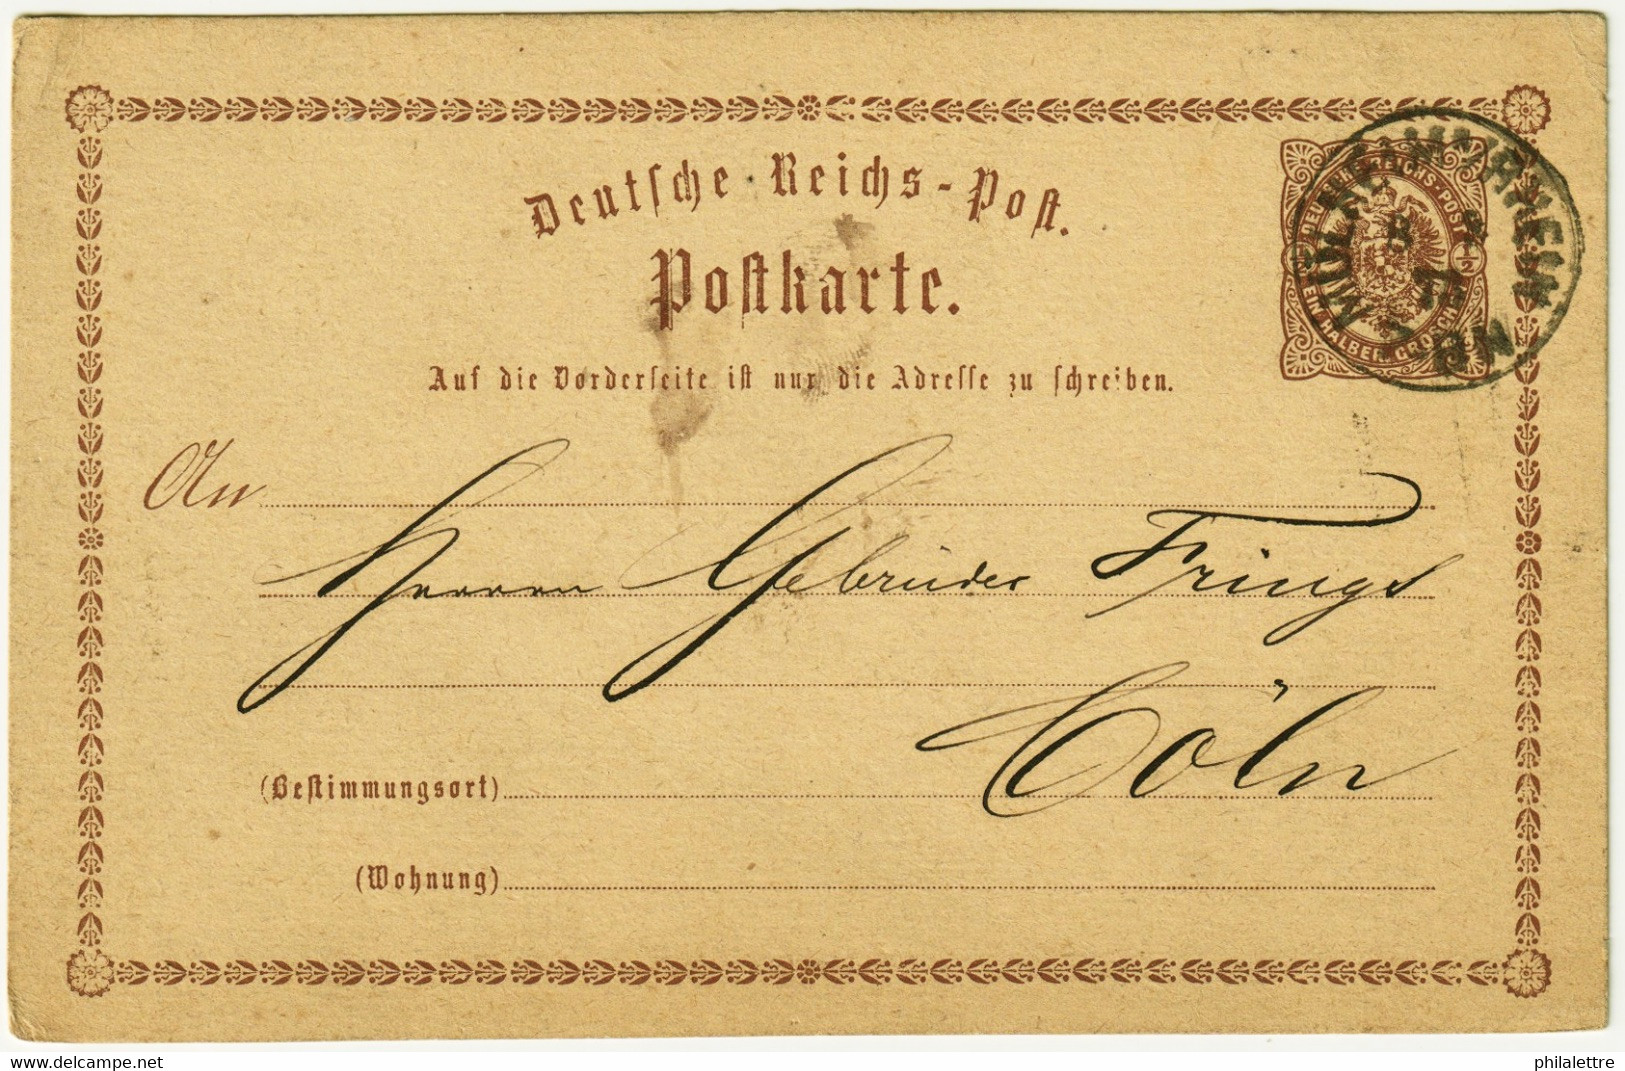 Deutsche Reichs-Post.
Postkarte.
EIN HALBER GROSCHEN
1/2
Auf die Vorderseite ist nur die Adresse zu schreiben.
An
Herren Gebrüder Frings
Cöln
(Bestimmungsort)
(Wohnung)
delcampe.net
philalettre